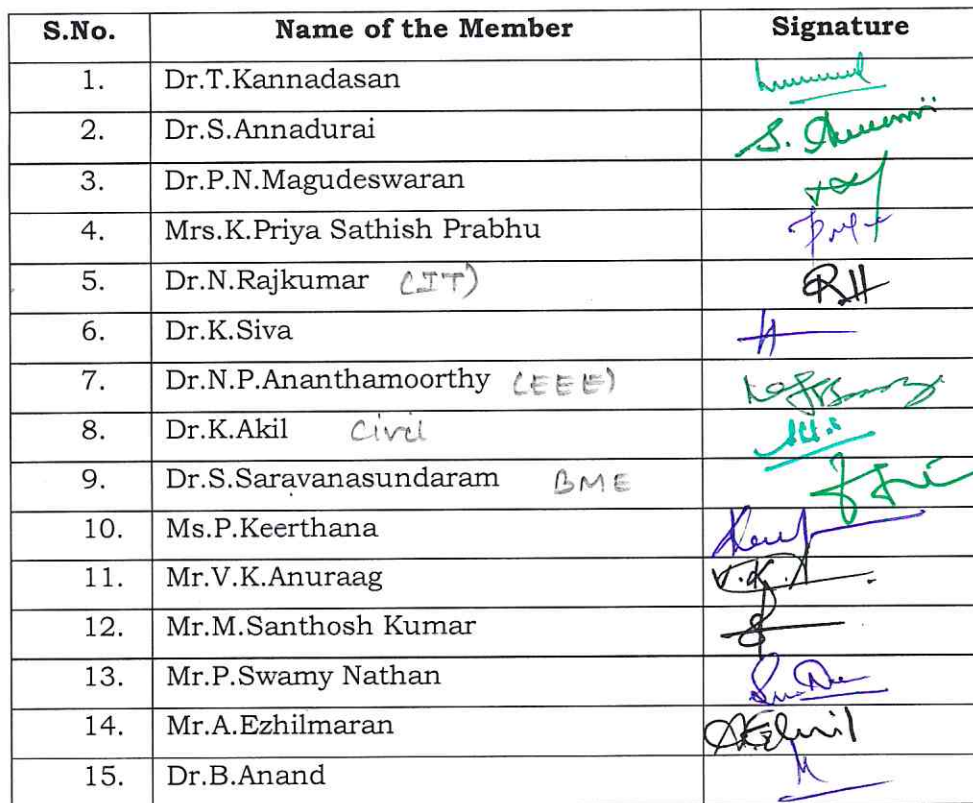 S.No. Name of the Member Signature
1. Dr.T.Kannadasan
2. Dr.S.Annadurai S.
3. Dr.P.N.Magudeswaran
4. Mrs.K.Priya Sathish Prabhu
5. Dr.N.Rajkumar (IT)
6. Dr.K.Siva
7. Dr.N.P.Ananthamoorthy (EEE)
8. Dr.K.Akil Civil
9. Dr.S.Saravanasundaram BME
10. Ms.P.Keerthana
11. Mr.V.K.Anuraag
12. Mr.M.Santhosh Kumar
13. Mr.P.Swamy Nathan
14. Mr.A.Ezhilmaran
15. Dr.B.Anand